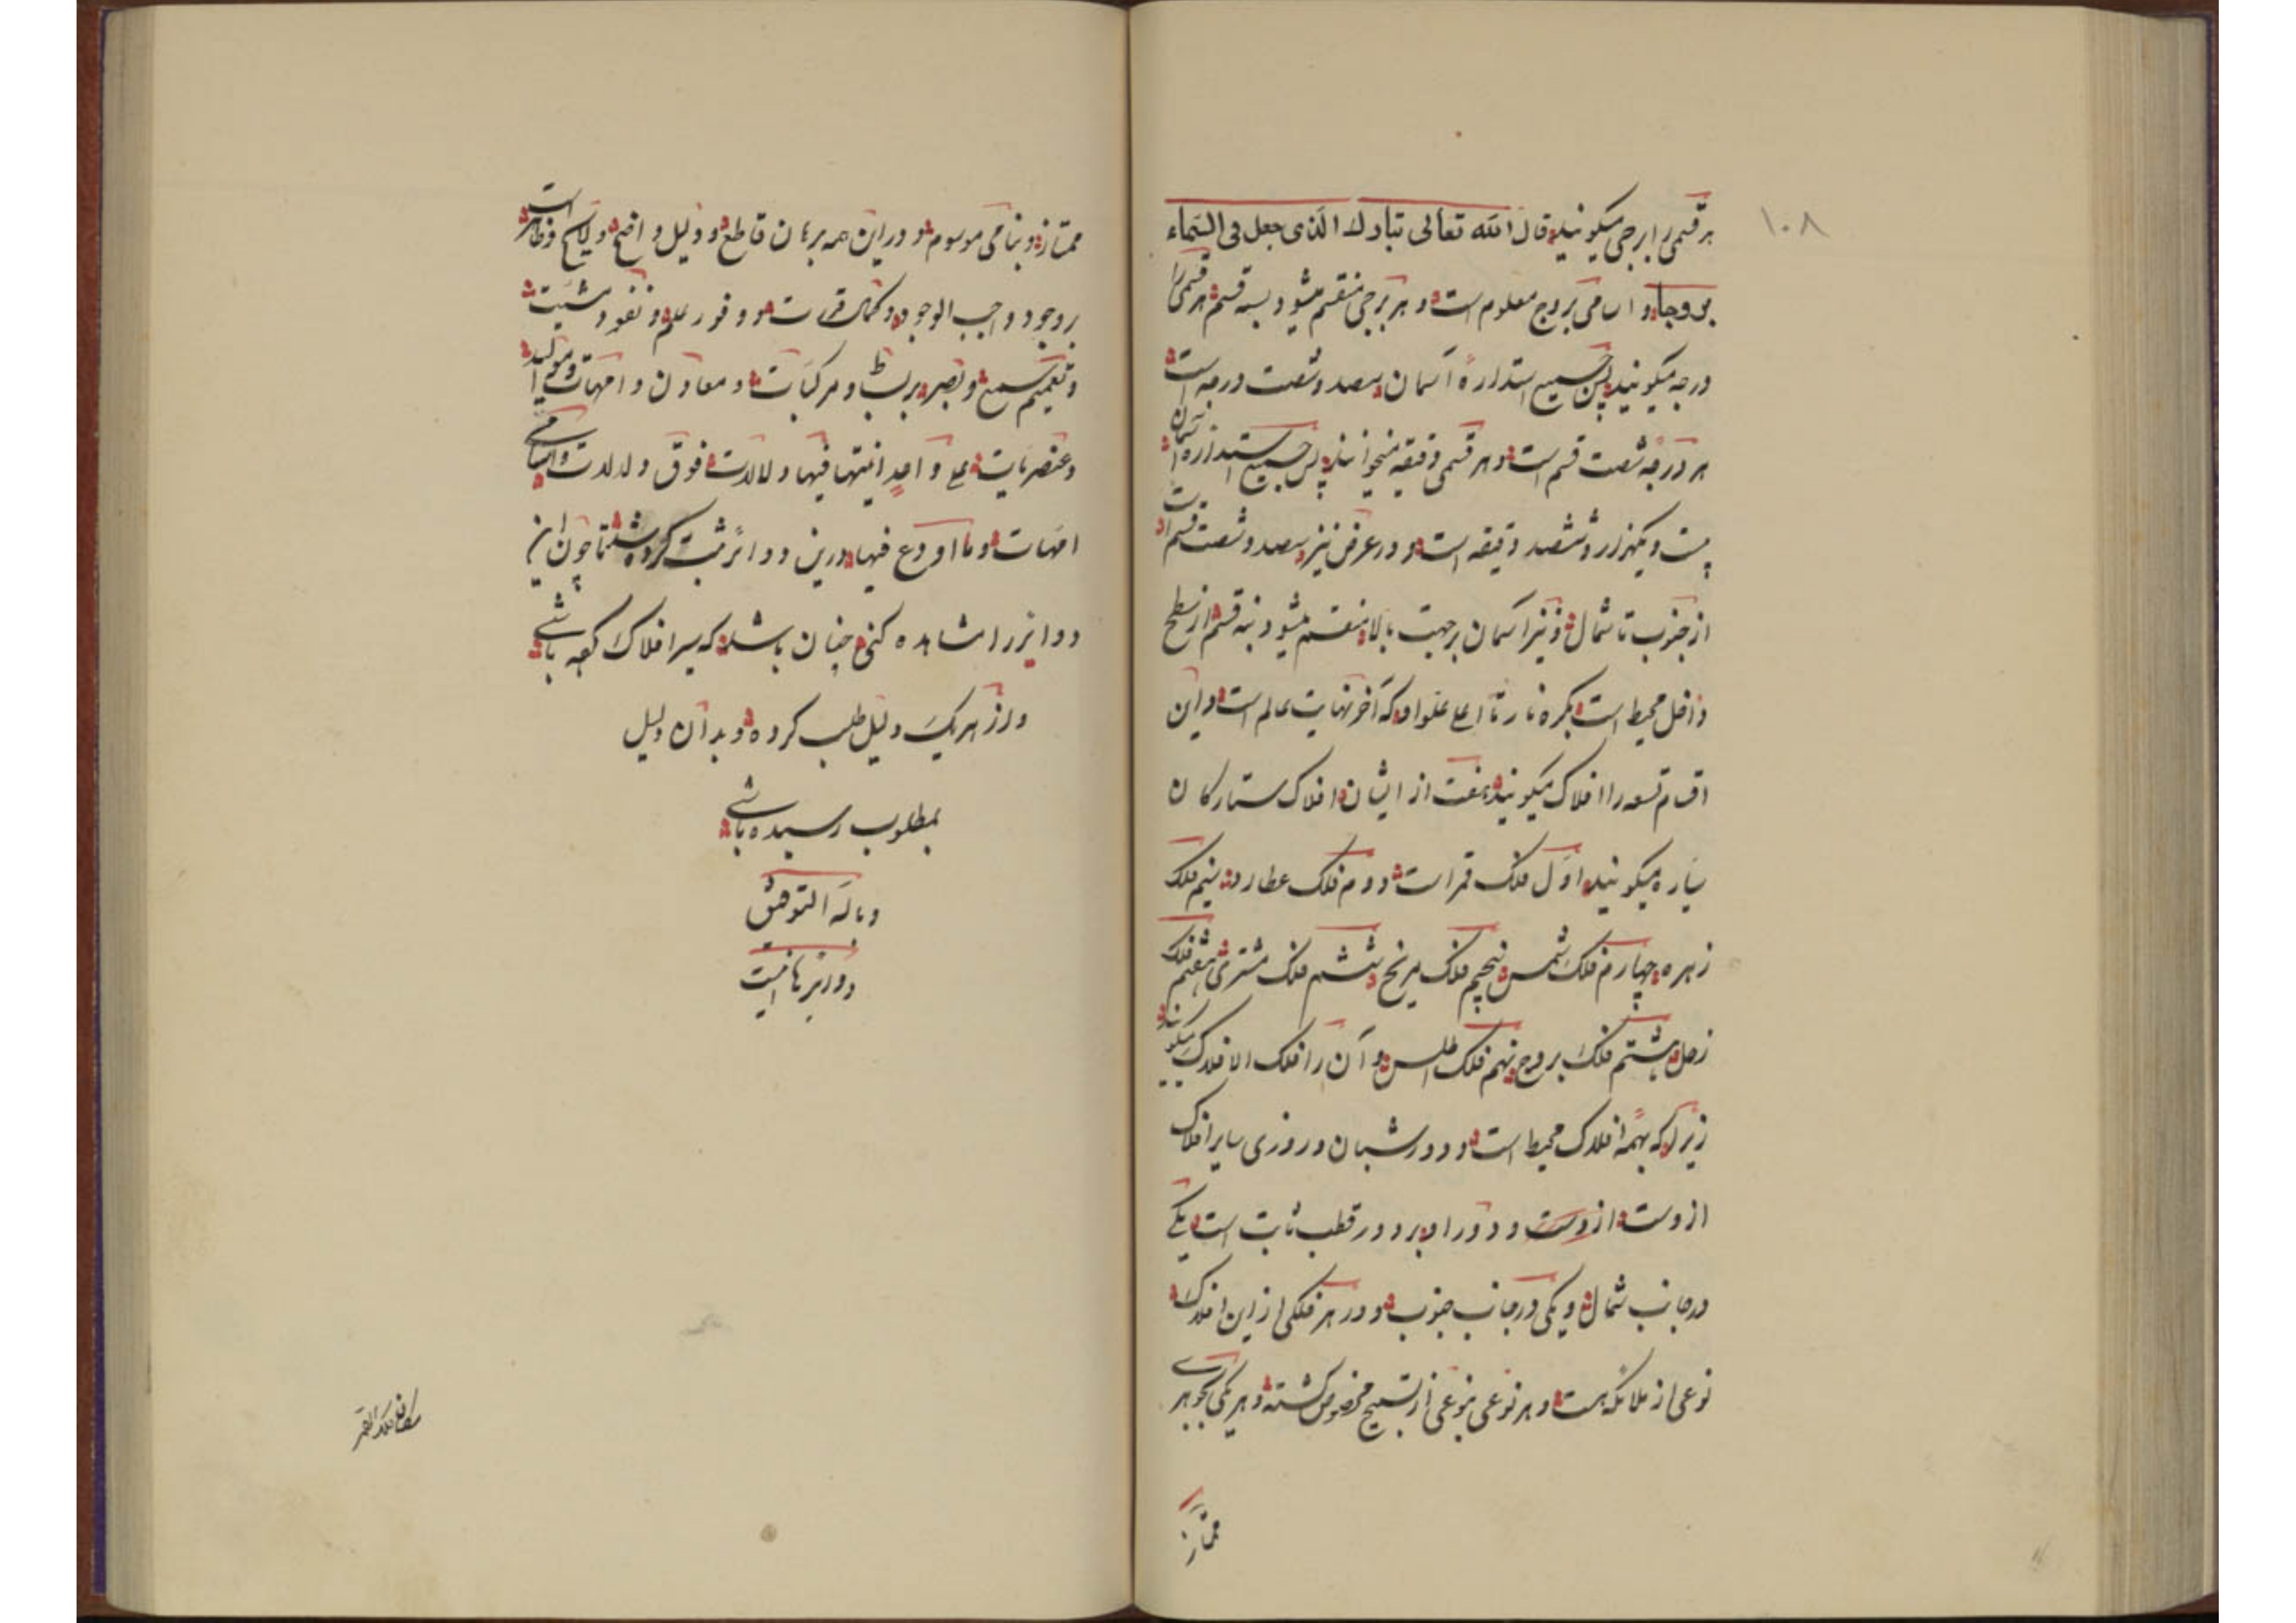 ۱۰۸
هر قسمی را برجی میکویند قال الله تعالی تبارك الذی جعل فی السماء
بروجا و اسامی بروج معلوم است و هر برجی منقسم میشود بسه قسم هر قسمی را
درجه میکویند پس جمیع استداره آسمان سیصد و شصت درجه است
هر درجه شصت قسم است و هر قسمی دقیقه میخوانند پس جمیع استداره آسمان
بیست و یکهزار و ششصد دقیقه است و در عرض نیز سیصد و شصت قسم است
از جنوب تا شمال و نیز آسمان برجهت بالا منقسم میشود بنه قسم از سطح
داخل محیط است بکره نار تا اعلی علو او که آخر نهایت عالم است و این
اقسام تسعه را افلاک میکویند هفت از ایشان افلاک ستارکان
سیاره میکویند اول فلک قمر است دوم فلک عطارد سیم فلک
زهره چهارم فلک شمس پنجم فلک مریخ ششم فلک مشتری هفتم فلک
زحل هشتم فلک بروج نهم فلک اطلس و آن را فلک الافلاک میکویند
زیرا که بهمه افلاک محیط است و دور شبان و روزی سایر افلاک
ازوست ازوست و دور او بر دور قطب ثابت است یکی
در جانب شمال و یکی در جانب جنوب و در هر فلکی از این افلاک
نوعی از ملائکه هست و هر نوعی بنوعی از تسبیح مخصوص کشته و هر یکی بجوهری
ممتاز
ممتاز و بنامی موسوم و در این همه برهان قاطع و دلیل واضح و لایح و ظاهر است
بر وجود واجب الوجود و کمال قدرت و وفور علم و نفوذ مشیت
و تعمیم سمع و بصر بر بسائط و مرکبات و معادن و امهات و موالید
و عنصریات علی واحد انیتها فیها و دلالات فوق و دلالات و اسامی
امهات و ما اودع فیها درین دوائر ثبت کرده شد تا چون این
دوایر را مشاهده کنی چنان باشد که سیر افلاک کرده باشی
و از هر یک دلیل طلب کرده و بدان دلیل
بمطلوب رسیده باشی
و بالله التوفیق
و دوائر اینست